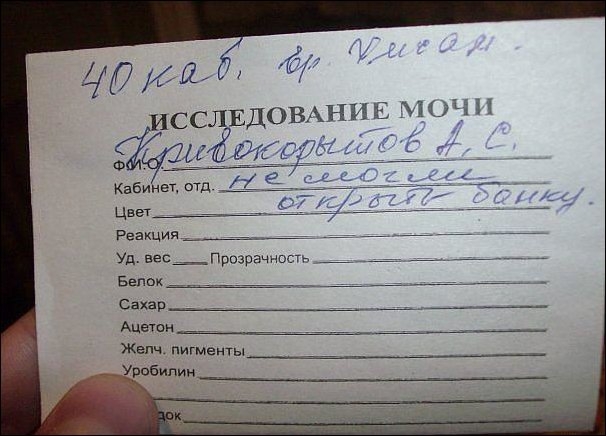 40 каб. вр. Хисам.
ИССЛЕДОВАНИЕ МОЧИ
Ф.И.О. Кривокорытов А. С.
Кабинет, отд. не могли
Цвет открыть банку.
Реакция
Уд. вес Прозрачность
Белок
Сахар
Ацетон
Желч. пигменты
Уробилин